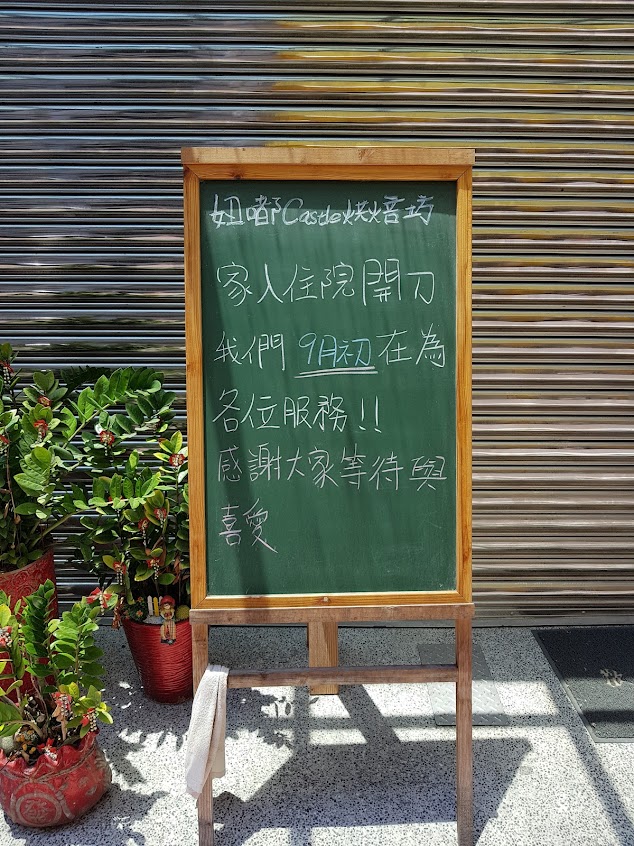 妞嘟Castle烘焙坊
家人住院開刀
我們9月初在為
各位服務!!
感謝大家等待與
喜愛